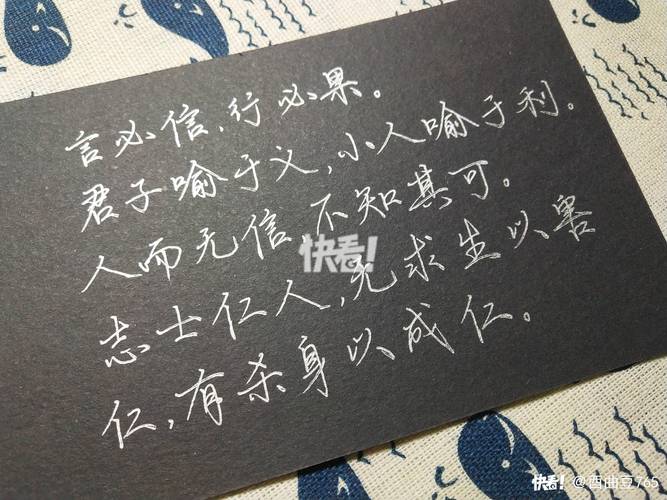 言必信，行必果。
君子喻于义，小人喻于利。
人而无信，不知其可。
志士仁人，无求生以害
仁，有杀身以成仁。
快看！
快看！@西曲豆765